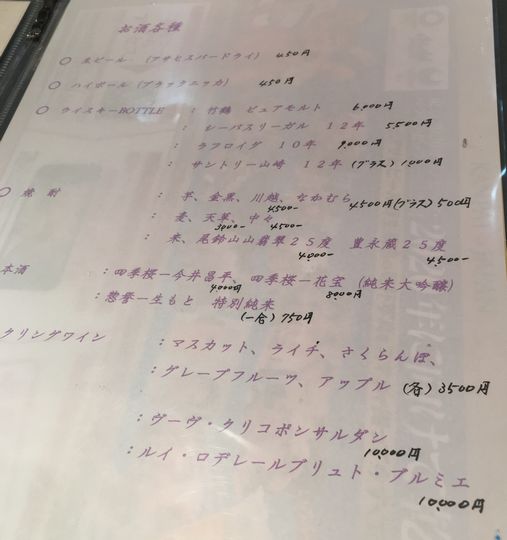 お酒各種
○ 生ビール （アサヒスーパードライ） 450円
○ ハイボール（ブラックニッカ） 450円
○ ウイスキーBOTTLE ： 竹鶴 ピュアモルト 6,000円
： シーバスリーガル １２年 5,500円
： ラフロイグ １０年 9,000円
： サントリー山崎 １２年 (グラス) 1000円
○ 焼酎 ： 芋、金黒、川越、なかむら 4,500円(グラス) 500円
4500-
： 麦、天草、中々
3000- 4500-
： 米、尾鈴山山翡翠２５度 豊永蔵２５度
4,000- 4,500-
本酒 ：四季桜－今井昌平、四季桜－花宝（純米大吟醸）
4000円 8000円
：惣誉－生もと 特別純米
(一合) 750円
クリングワイン ：マスカット、ライチ、さくらんぼ、
：グレープフルーツ、アップル (各) 3500円
：ヴーヴ・クリコポンサルダン
10,000円
：ルイ・ロデレールブリュト・プルミエ
10,000円